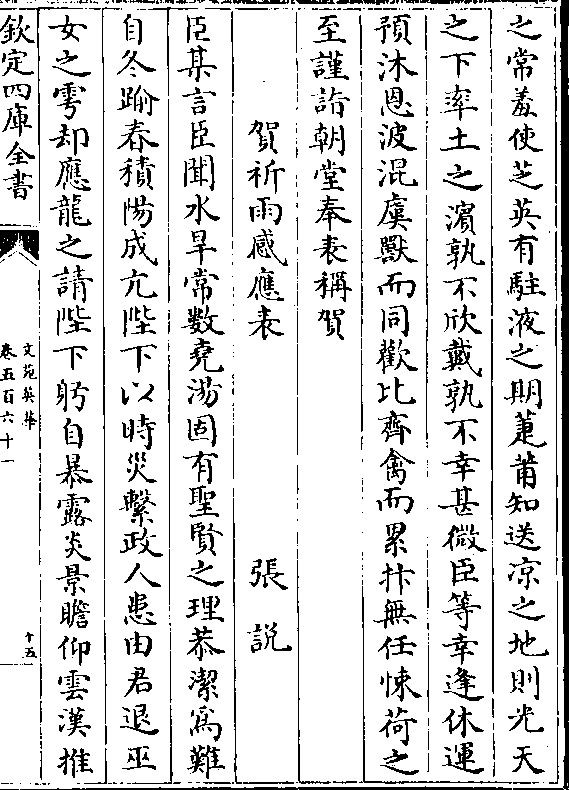 之常羞使芝英有駐液之期萐莆知送凉之地則光天
之下率土之濵孰不欣戴孰不幸甚微臣等幸逢休運
預沐恩波混虞獸而同歡比齊禽而累抃無任悚荷之
至謹詣朝堂奉表稱賀
賀祈雨感應表　張説
臣某言臣聞水旱常數堯湯固有聖賢之理恭潔為難
自冬踰春積陽成亢陛下以時災繫政人患由君退巫
女之雩却應龍之請陛下躬自暴露炎景瞻仰雲漢推
欽定四庫全書
文苑英華
卷五百六十一
十五